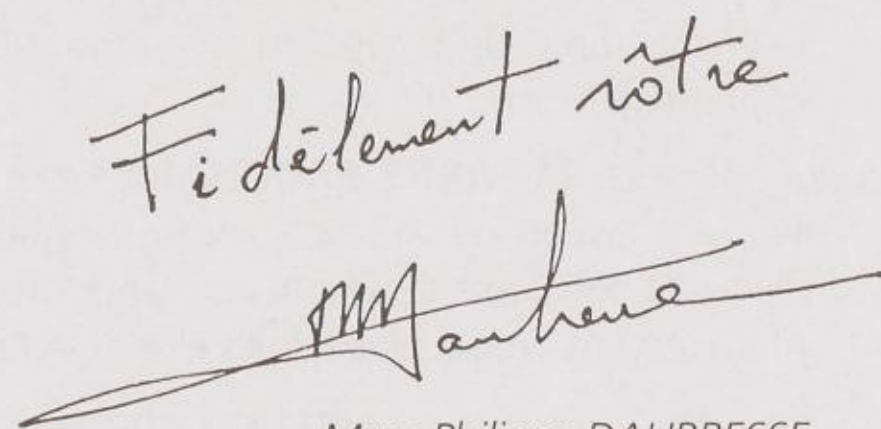 Fidèlement vôtre
Marc-Philippe DAUBRESSE